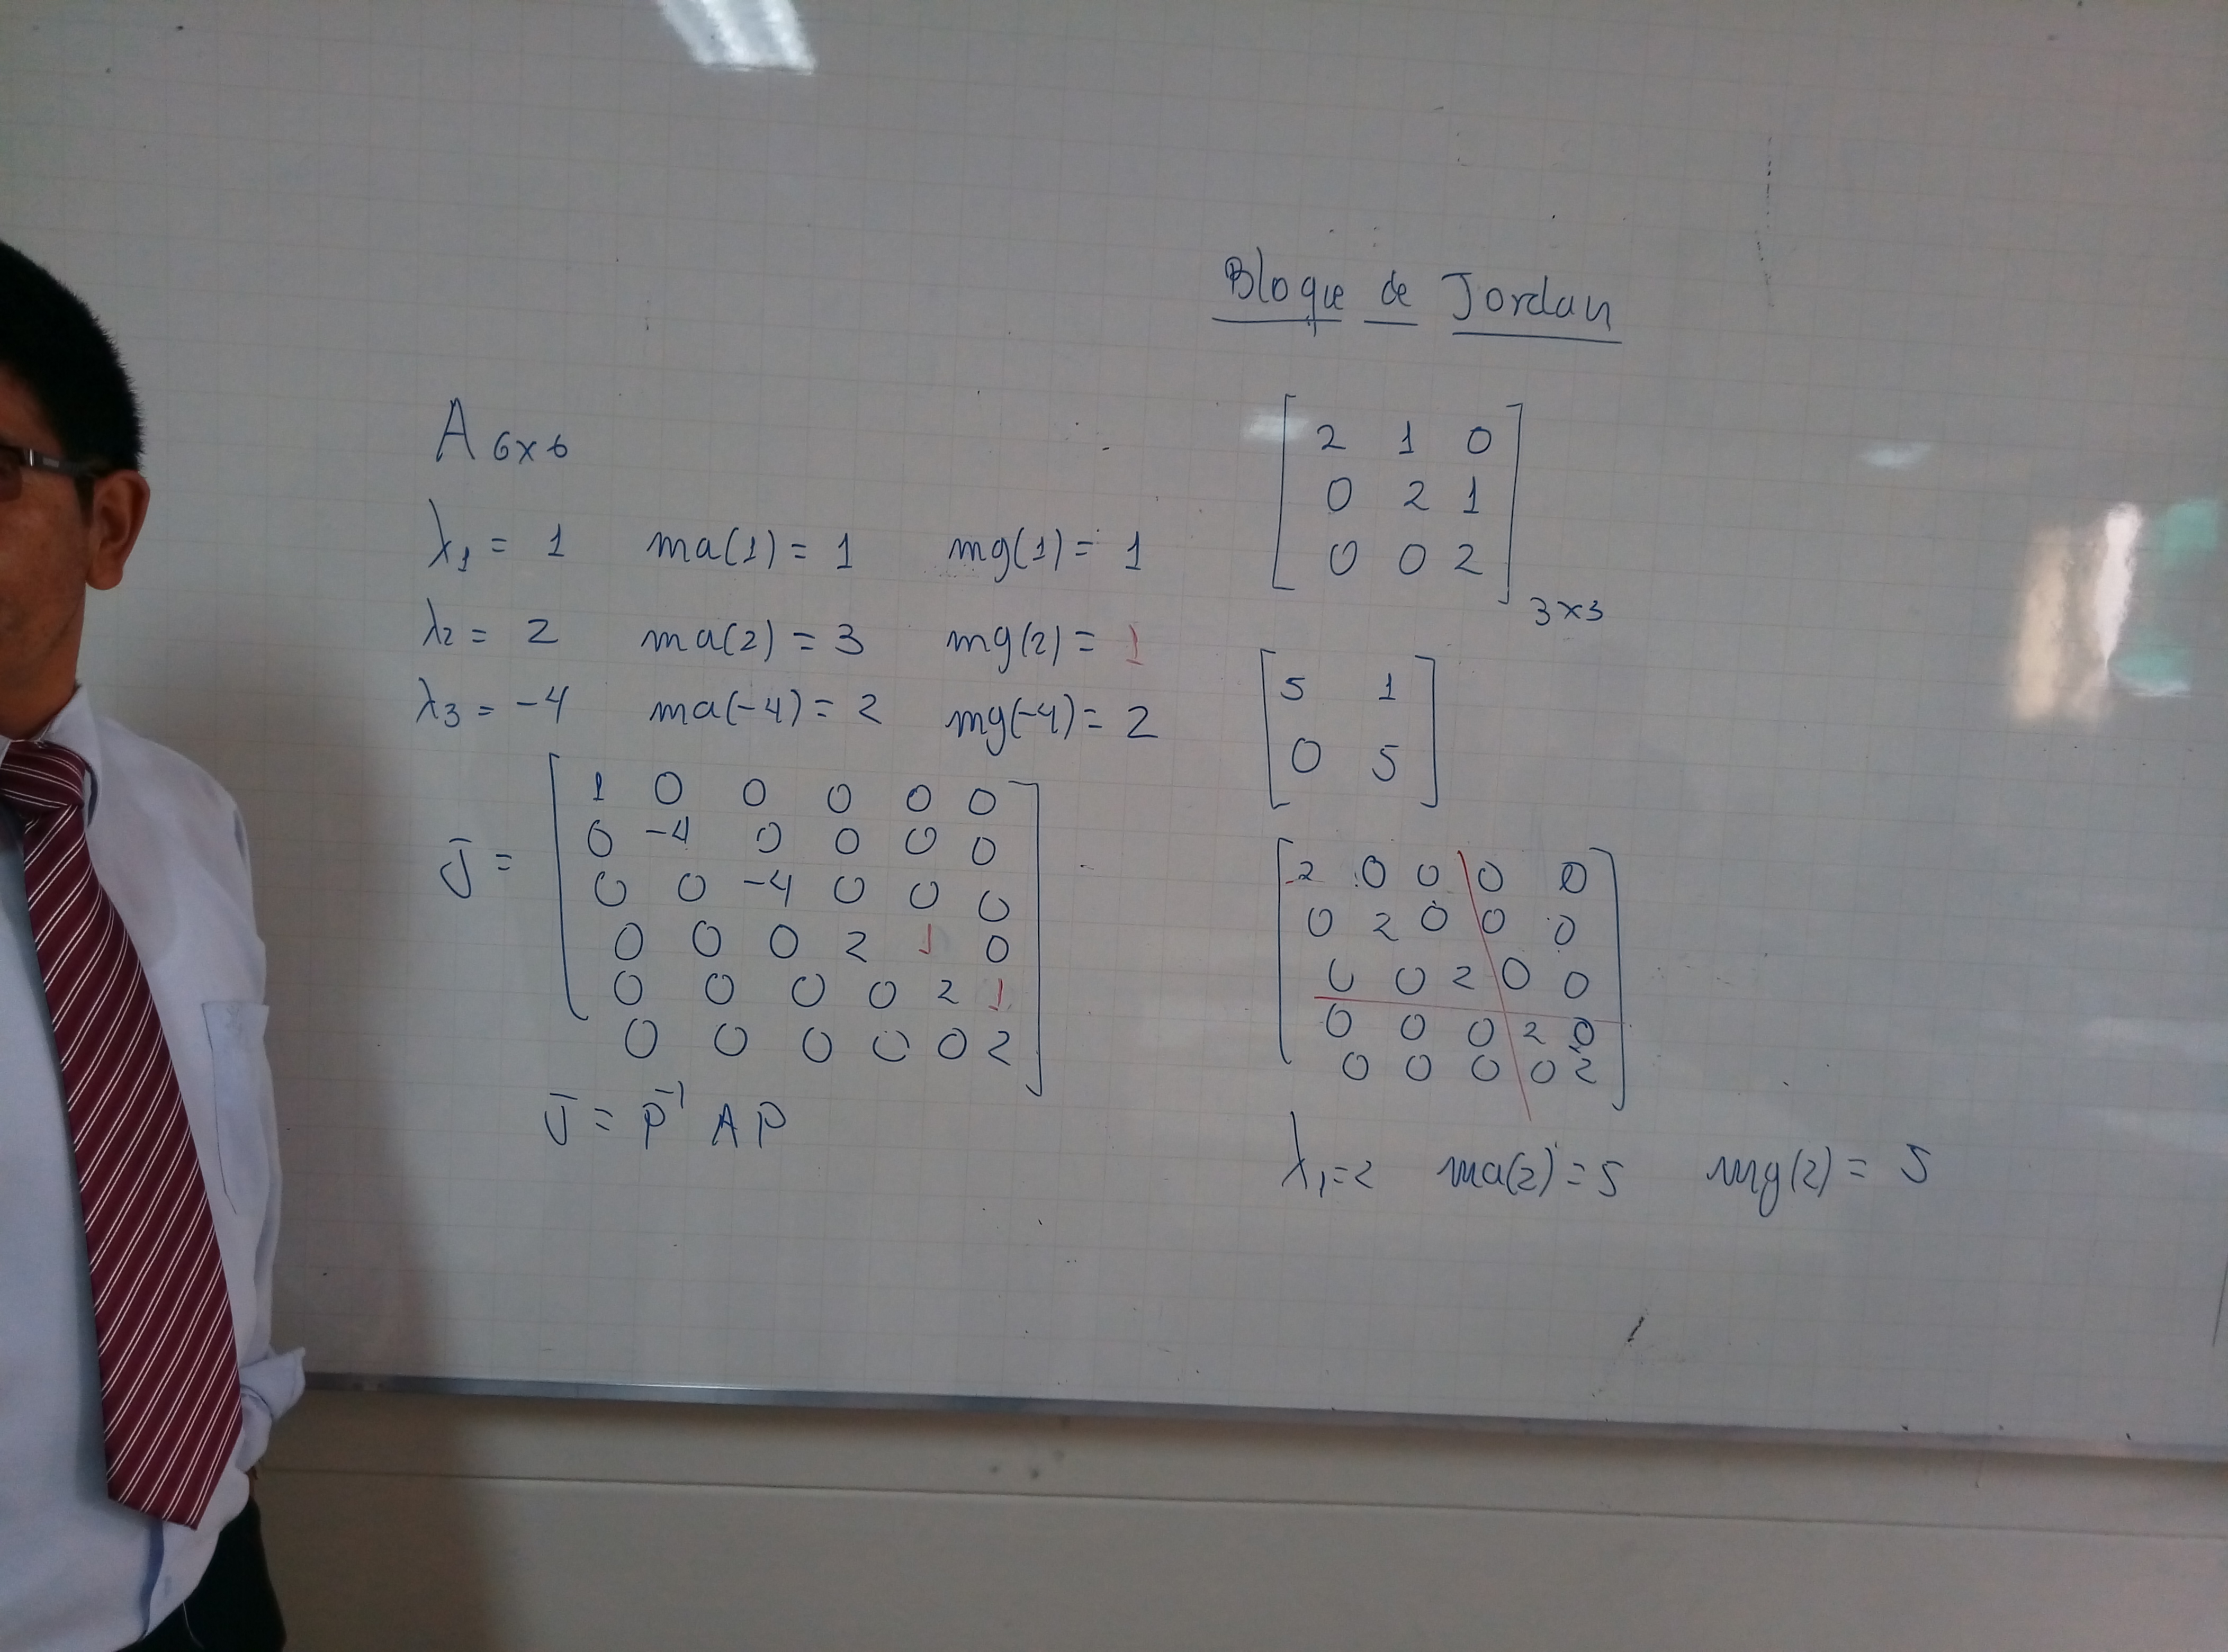 Bloque de Jordan
A 6x6
λ1 = 1 ma(1) = 1 mg(1) = 1
λ2 = 2 ma(2) = 3 mg(2) = 1
λ3 = -4 ma(-4) = 2 mg(-4) = 2
J =
1 0 0 0 0 0
0 -4 0 0 0 0
0 0 -4 0 0 0
0 0 0 2 1 0
0 0 0 0 2 1
0 0 0 0 0 2
J = P⁻¹ A P
2 1 0
0 2 1
0 0 2
3x3
5 1
0 5
2 0 0 0 0
0 2 0 0 0
0 0 2 0 0
0 0 0 2 0
0 0 0 0 2
λ1=2 ma(2) = 5 mg(2) = 5